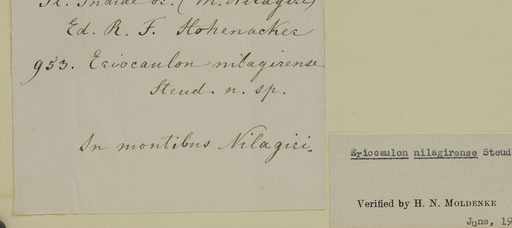 Pl. Indiae or. (M. Nilagiri)
Ed. R. F. Hohenacker
953. Eriocaulon nilagirense
Steud. n. sp.
In montibus Nilagiri.
Eriocaulon nilagirense Steud
Verified by H. N. MOLDENKE
June, 19